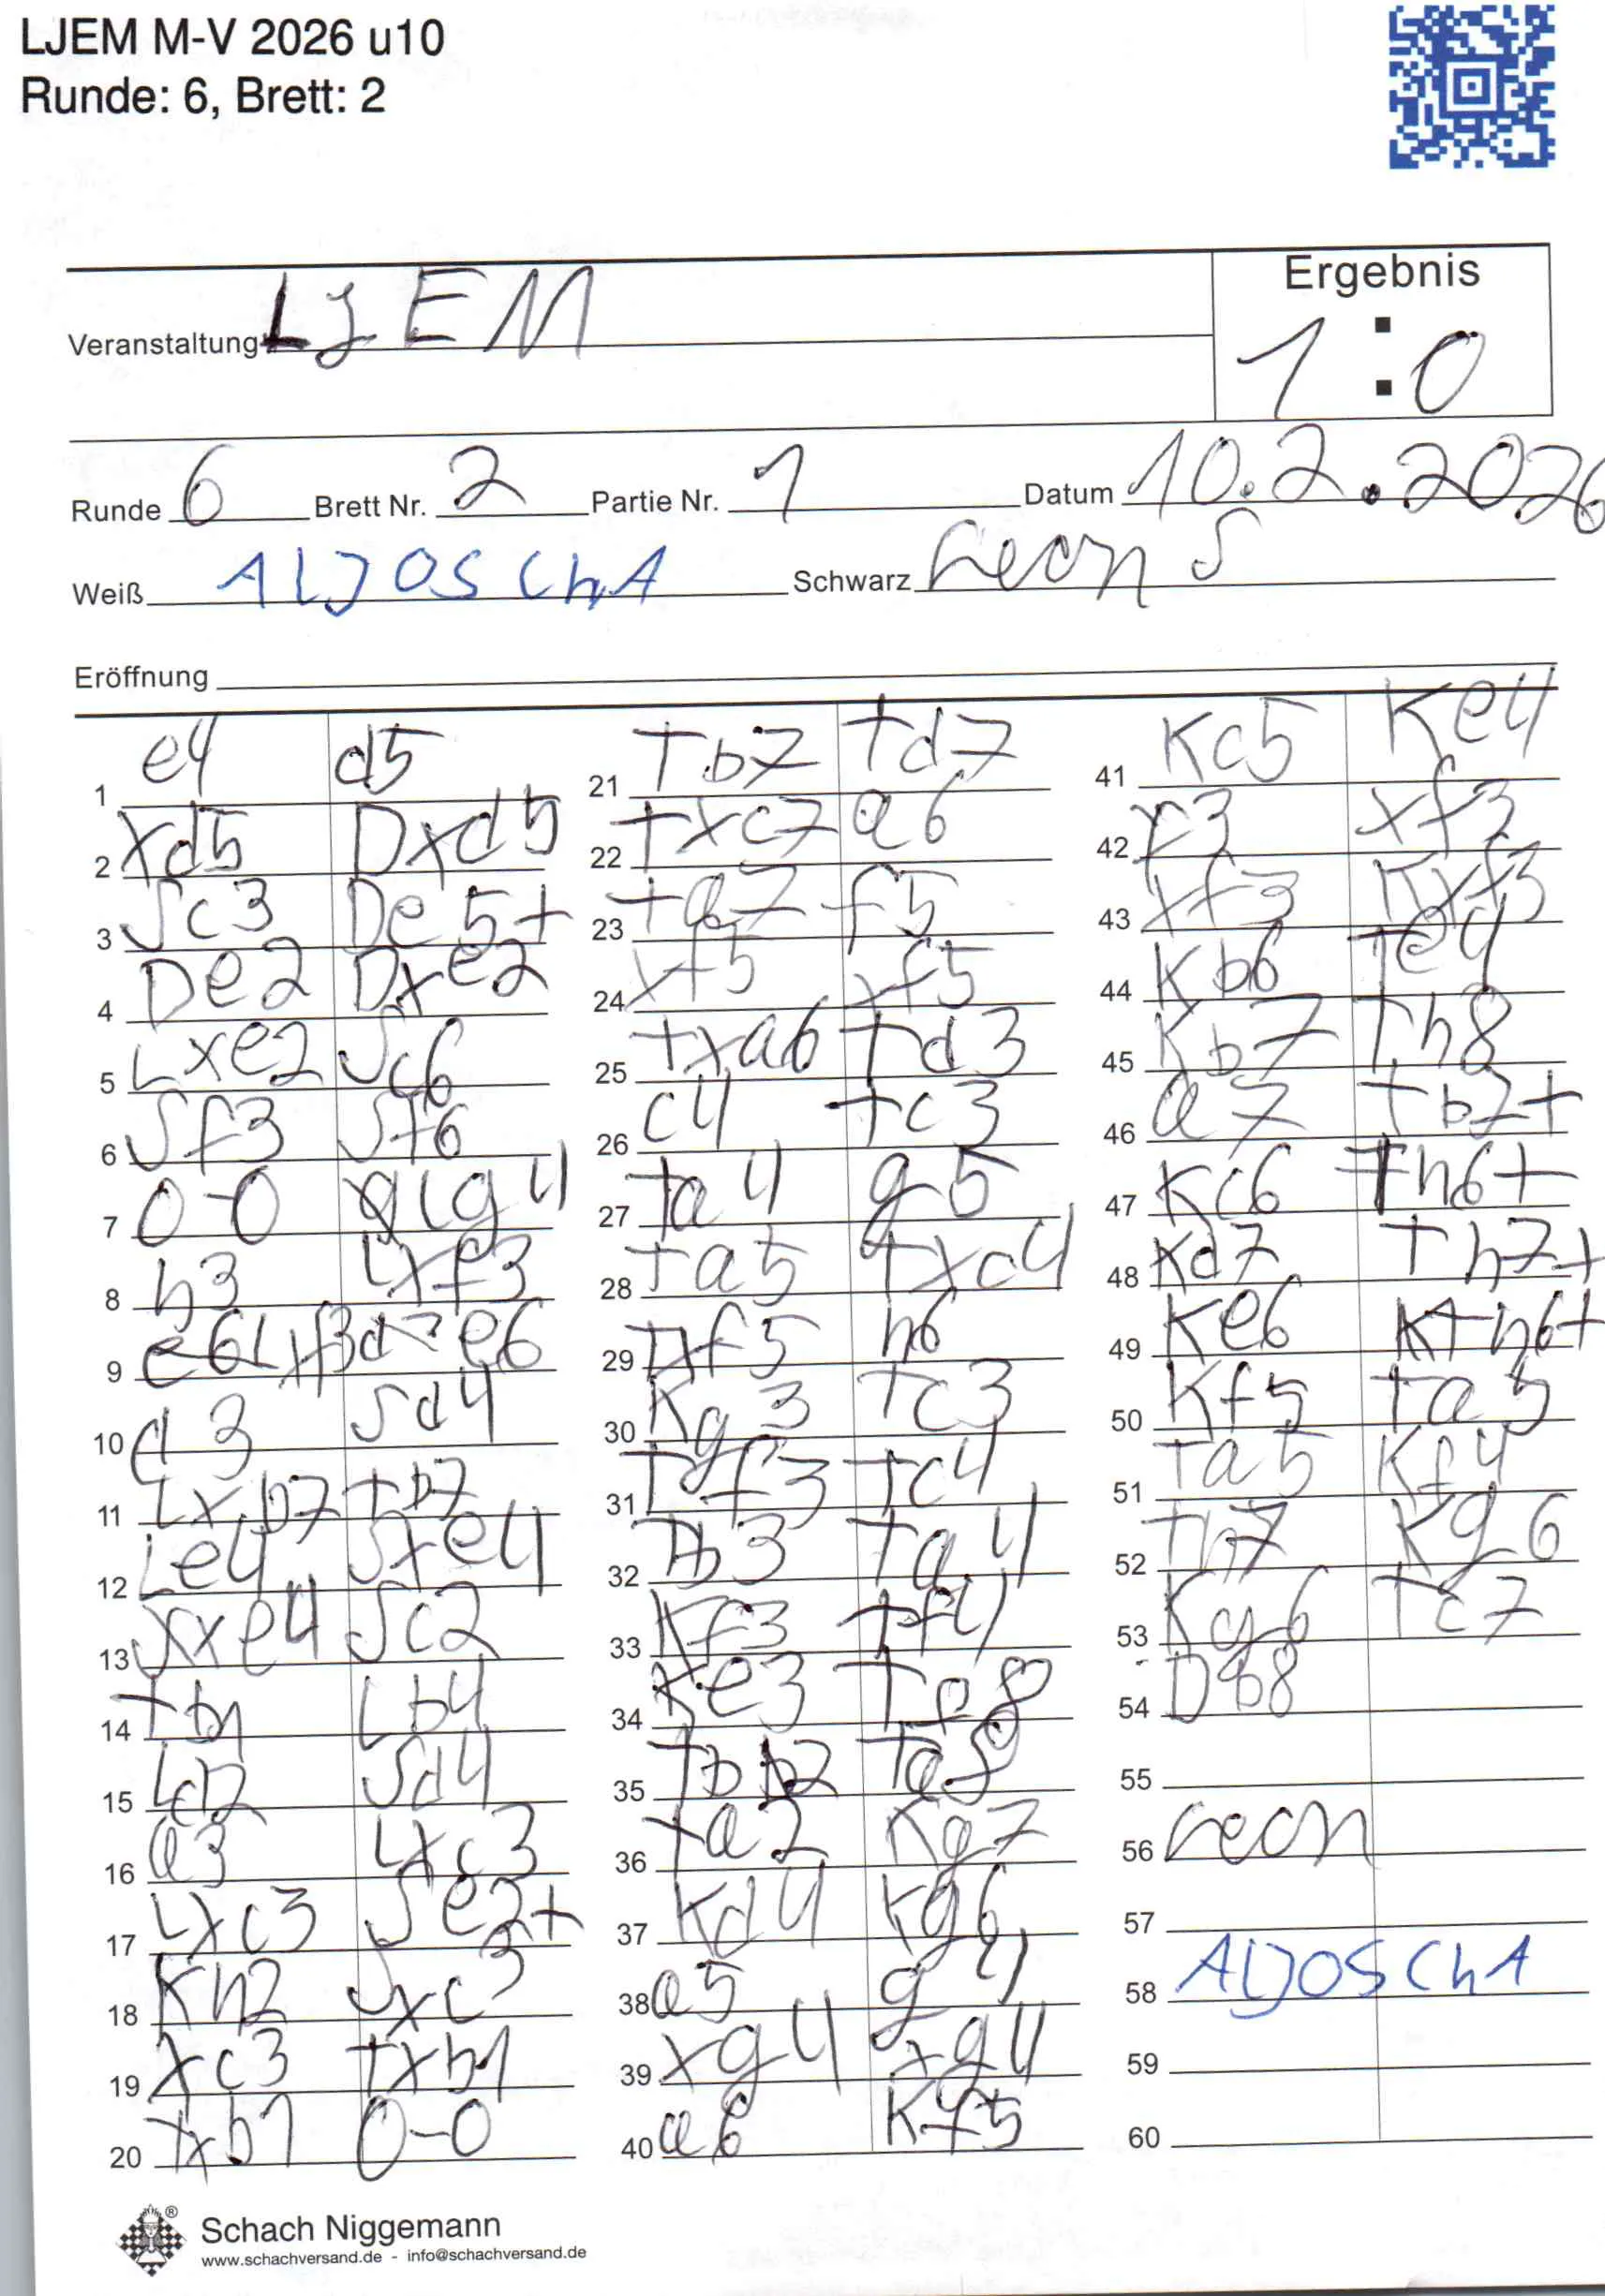 LJEM M-V 2026 u10
Runde: 6, Brett: 2
Ergebnis
Veranstaltung LJEM
1 : 0
Runde 6 Brett Nr. 2 Partie Nr. 1 Datum 10.2.2026
Weiß ALJOSChA Schwarz Leon S
Eröffnung
1 e4 d5
2 xd5 Dxd5
3 Sc3 De5+
4 De2 Dxe2
5 Lxe2 Sc6
6 Sf3 Sf6
7 0-0 Lg4
8 h3 Lxf3
9 Lxf3 e6
10 d3 Sd4
11 Lxb7 Tb7
12 Le4 Sxe4
13 Sxe4 Sc2
14 Tb1 Lb4
15 Ld2 Sd4
16 a3 Lxc3
17 Lxc3 Se2+
18 Kh2 Sxc3
19 xc3 Txb1
20 Txb1 0-0
21 Tb7 Td7
22 Txc7 a6
23 Ta7 f5
24 xf5 xf5
25 Txa6 Td3
26 c4 Tc3
27 Ta4 g5
28 Ta5 Txc4
29 Txf5 h6
30 Kg3 Tc3
31 Tf3 Tc4
32 Tb3 Ta4
33 Kf3 Tf4
34 Ke3 Te8
35 Tb2 Ta8
36 Ta2 Kg7
37 Kd4 Kg6
38 a5 g4
39 xg4 xg4
40 a6 Kf5
41 Kc5 Ke4
42 f3 xf3
43 xf3 Kxf3
44 Kb6 Te4
45 Kb7 Th8
46 a7 Tb7+
47 Kc6 Th6+
48 Kd7 Th7+
49 Ke6 Th6+
50 Kf5 Ta5
51 Ta5 Kf4
52 Th7 Kg6
53 Kg6 Tc7
54 Db8
55
56 Leon
57
58 ALJOSChA
59
60
Schach Niggemann
www.schachversand.de - info@schachversand.de